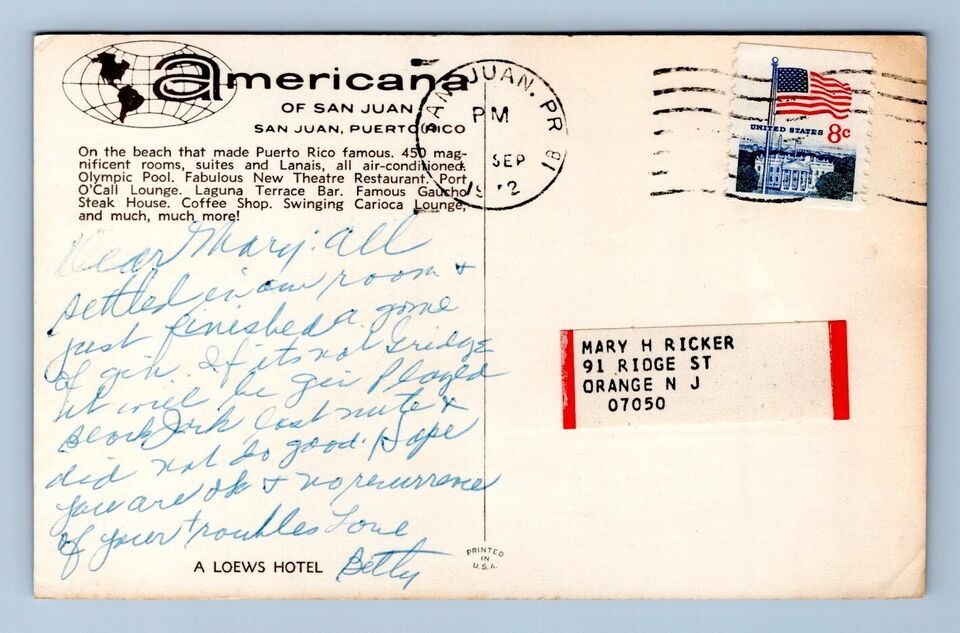 americana
OF SAN JUAN
SAN JUAN, PUERTO RICO
On the beach that made Puerto Rico famous. 450 mag-
nificent rooms, suites and Lanais, all air-conditioned.
Olympic Pool. Fabulous New Theatre Restaurant. Port
O'Call Lounge. Laguna Terrace Bar. Famous Gaucho
Steak House. Coffee Shop. Swinging Carioca Lounge,
and much, much more!
SAN JUAN, PR
PM
18 SEP
UNITED STATES 8c
Dear Mary: all
settled in our room &
just finished a game
of gin. If its not bridge
it will be gin Played
Black Jack last nite &
did not do good. Hope
you are ok & no recurrence
of your troubles Love
Betty
MARY H RICKER
91 RIDGE ST
ORANGE N J
07050
A LOEWS HOTEL
PRINTED
IN
U.S.A.